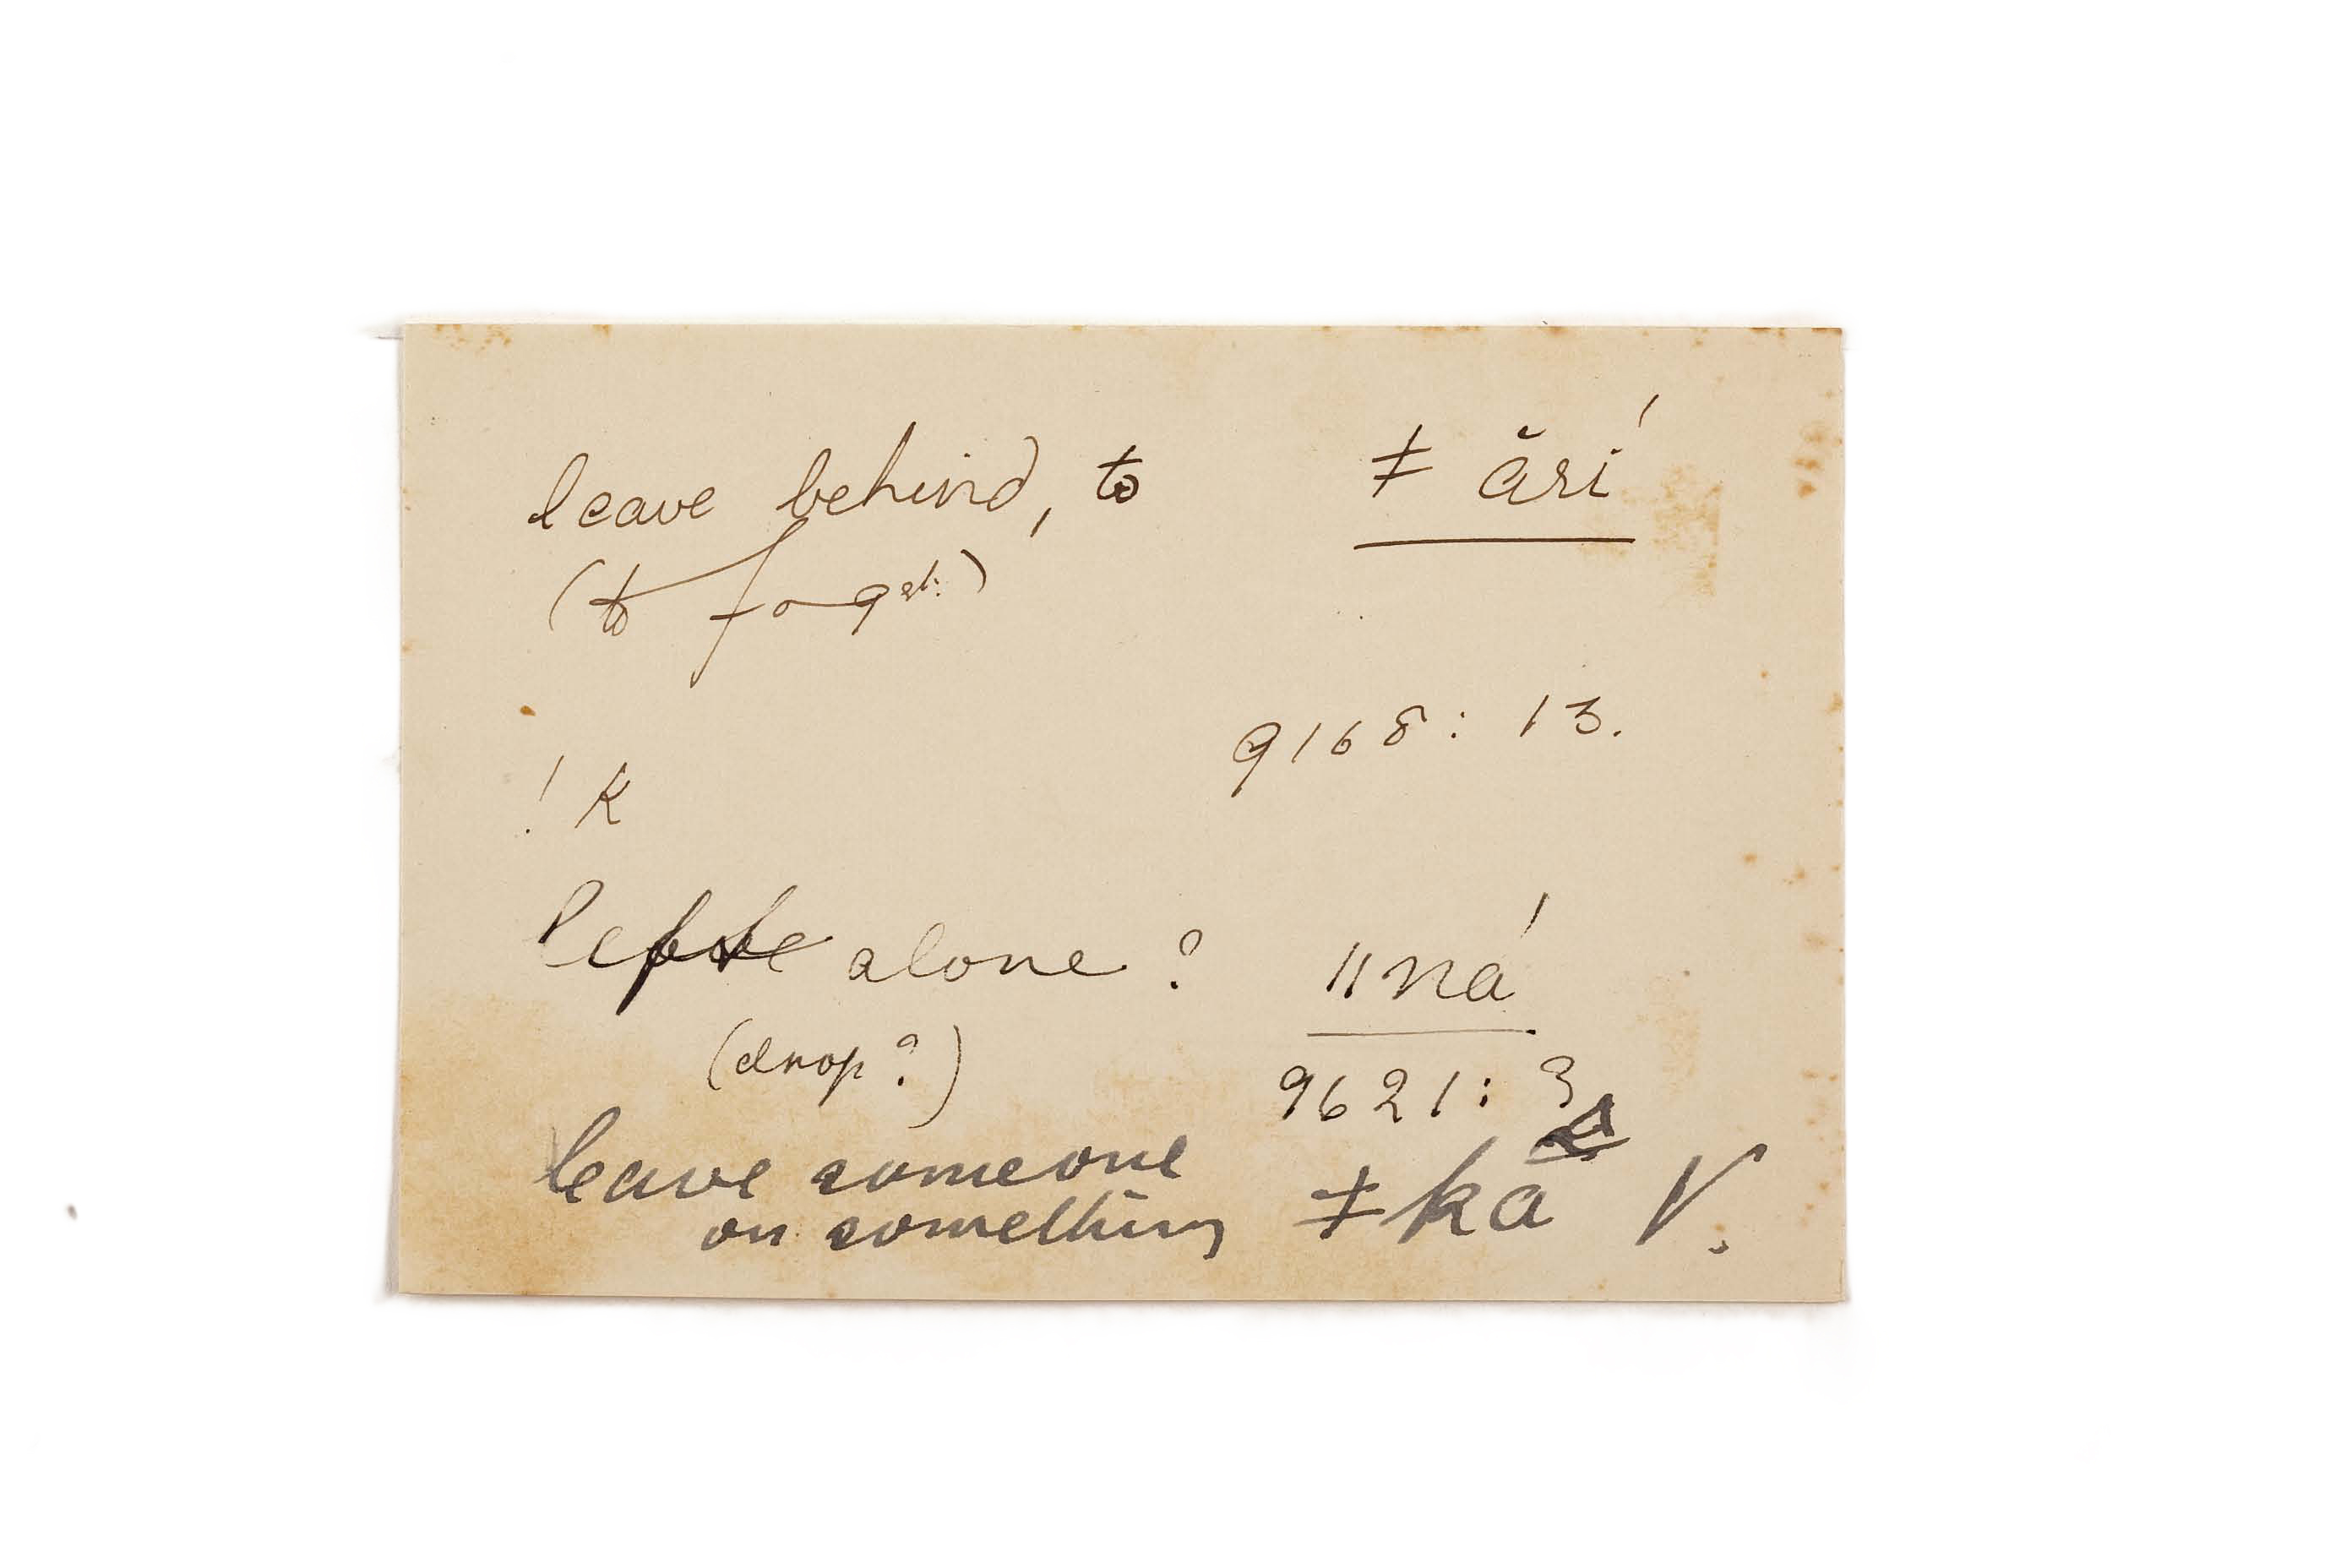 leave behind, to ǂ ărí
(to forget)
9168: 13.
! k
left alone? ǁná
(drop?) 9621: 3
leave someone ǂka V.
on something